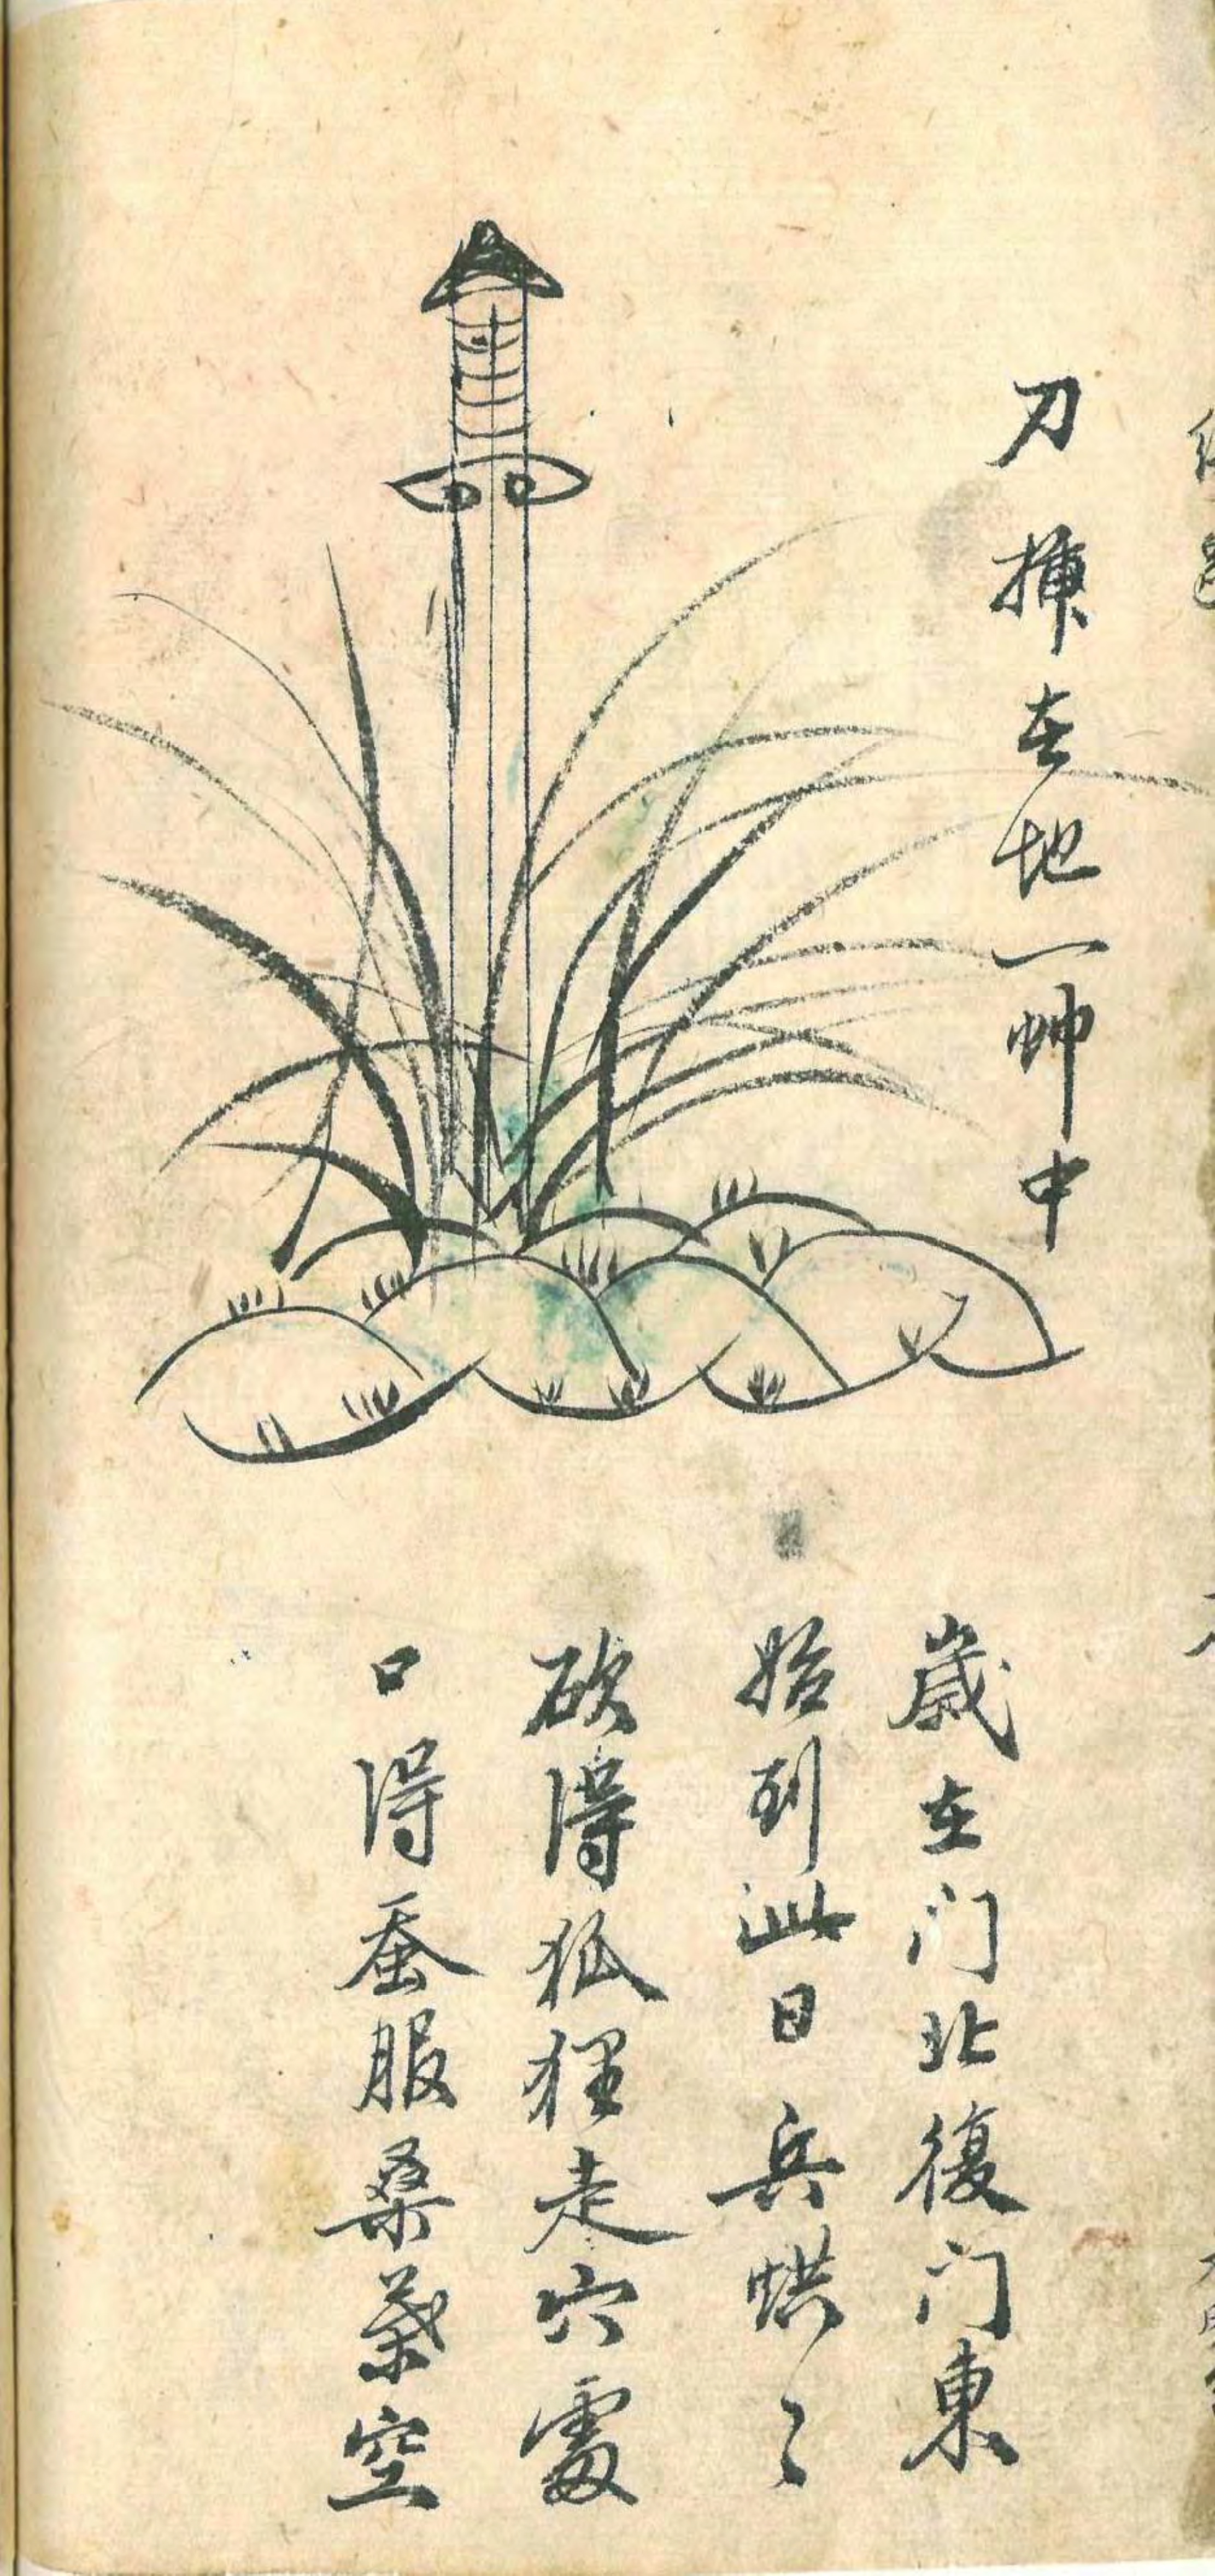 刀插在地一艸中
歲在门北復门東
始到此日兵烘〻
砍得狐狸走穴處
口得蚕服桑葉空